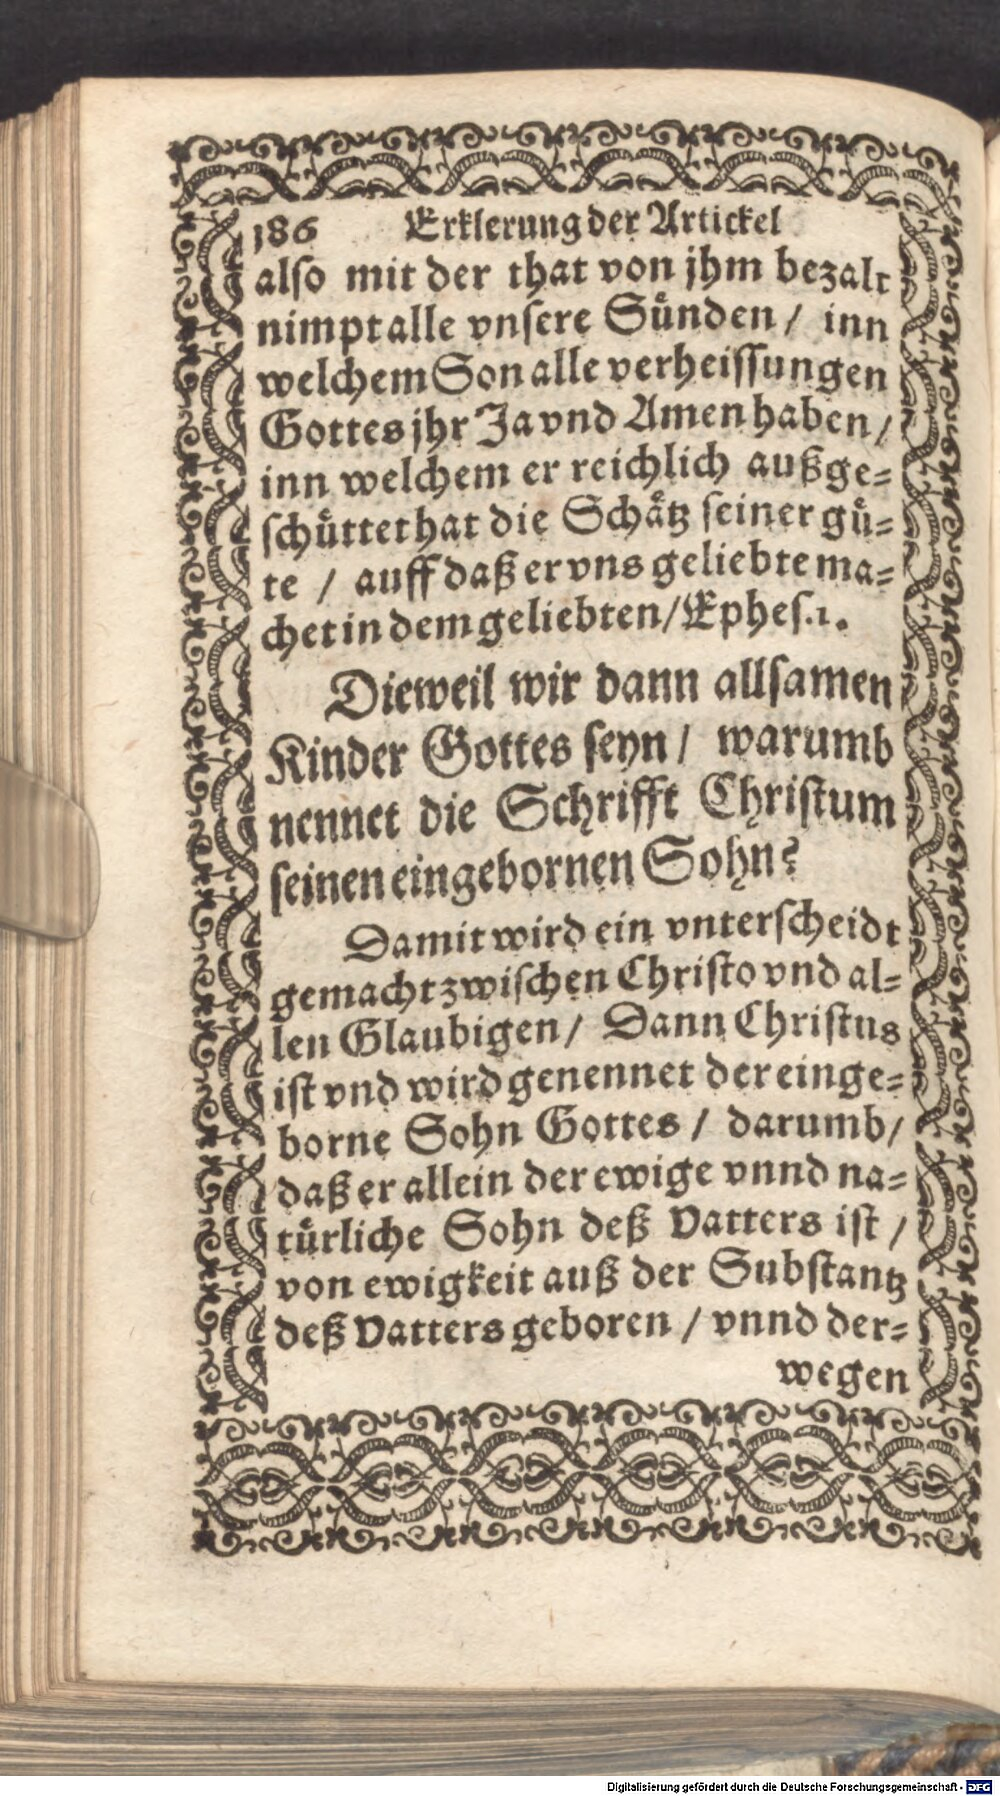 186 Erklerung der Artickel
also mit der that von jhm bezalt
nimpt alle vnsere Sünden / inn
welchem Son alle verheissungen
Gottes jhr Ja vnd Amen haben /
inn welchem er reichlich außge=
schüttet hat die Schätz seiner gü=
te / auff daß er vns geliebte ma=
chet in dem geliebten / Ephes. 1.
Dieweil wir dann allsamen
Kinder Gottes seyn / warumb
nennet die Schrifft Christum
seinen eingebornen Sohn?
Damit wird ein vnterscheidt
gemacht zwischen Christo vnd al=
len Glaubigen / Dann Christus
ist vnd wird genennet der einge=
borne Sohn Gottes / darumb /
daß er allein der ewige vnnd na=
türliche Sohn deß Vatters ist /
von ewigkeit auß der Substantz
deß Vatters geboren / vnnd der=
wegen
Digitalisierung gefördert durch die Deutsche Forschungsgemeinschaft - DFG